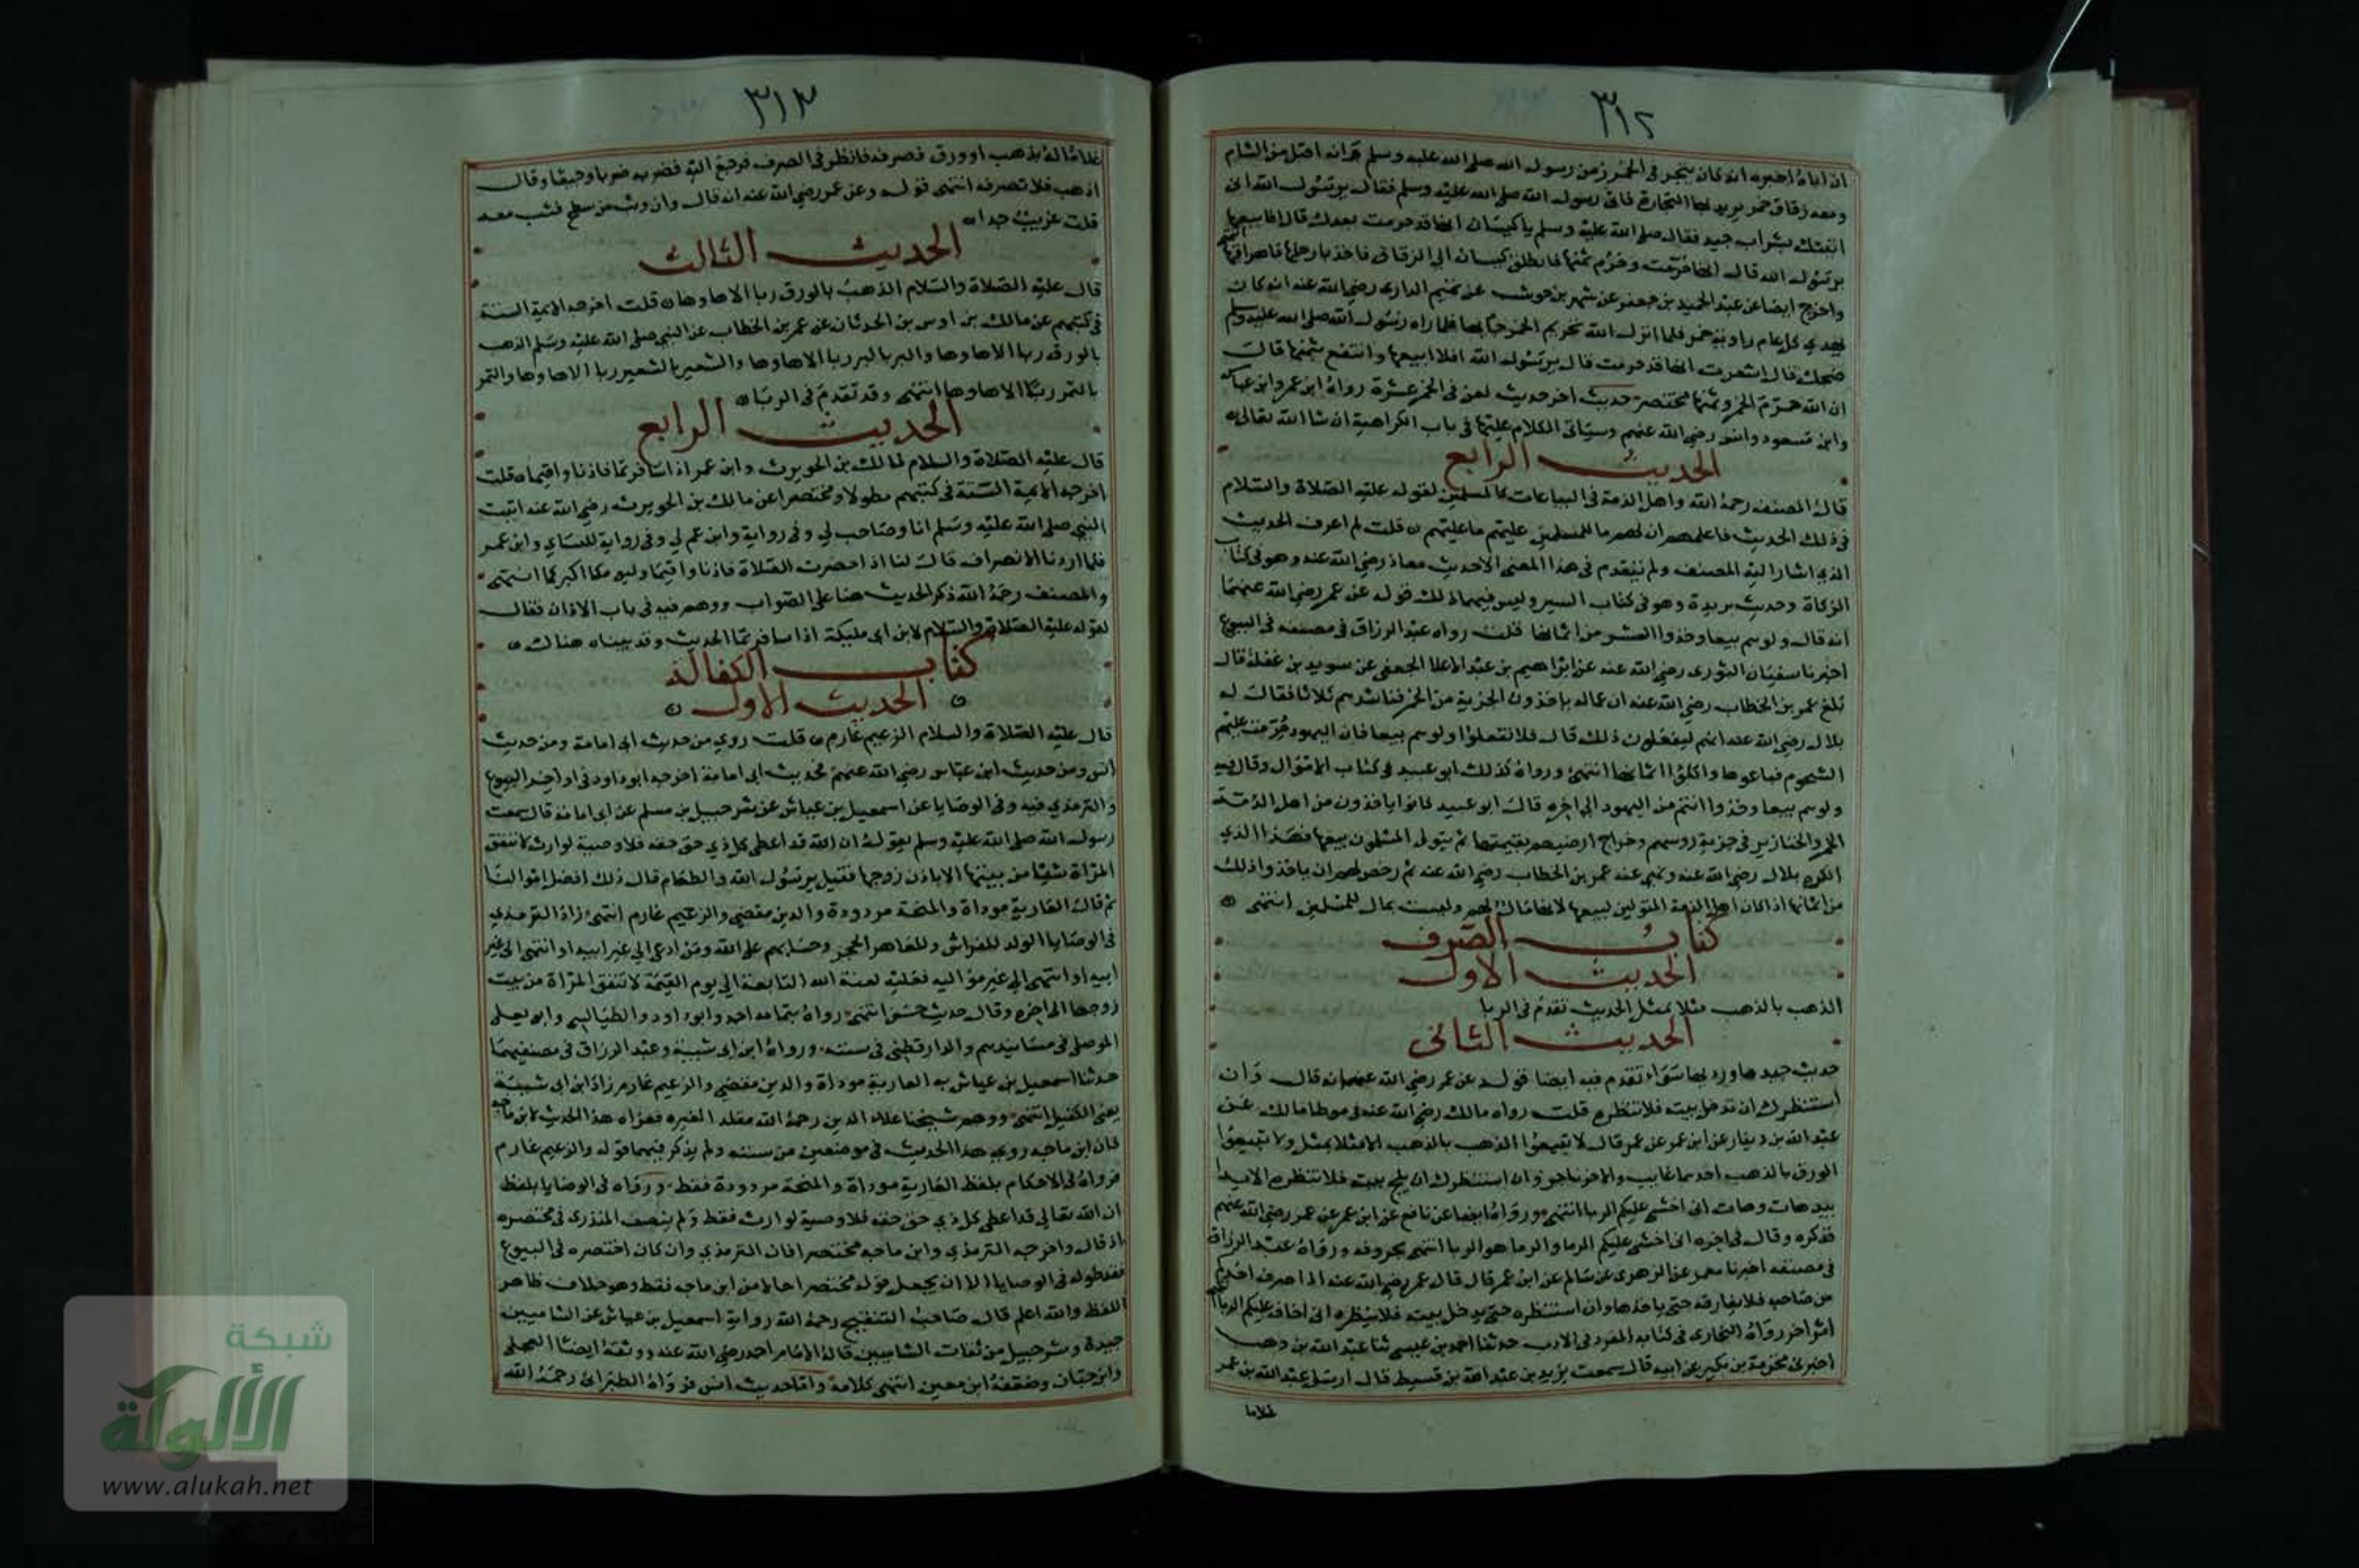 ٣١٢
ان اباه اخبره انه كان يتجر في الخمر زمن رسول الله صلى الله عليه وسلم وانه اقبل من الشام
ومعه زقاق خمر يريد بها التجارة فاتى رسول الله صلى الله عليه وسلم فقال يا رسول الله انى
اتيتك بشراب جيد فقال صلى الله عليه وسلم يا كيسان انها قد حرمت بعدك قال افابيعها
يا رسول الله قال انها حرمت وحرم ثمنها فانطلق كيسان الى الزقاق فاخذ بارجلها فاهراقها
واخرج ايضا عن عبد الحميد بن جعفر عن شهر بن حوشب عن تميم الدارى رضي الله عنه انه كان
يهدي كل عام راوية خمر فلما انزل الله تحريم الخمر جا بها فلما راه رسول الله صلى الله عليه وسلم
ضحك قال اشعرت انها قد حرمت قال يا رسول الله افلا ابيعها وانتفع بثمنها قال
ان الله حرم الخمر وثمنها مختصر حديث اخر حديث لعن في الخمر عشرة رواه ابن عمر وابن عباس
وابن مسعود وانس رضي الله عنهم وسياتى الكلام عليها في باب الكراهية ان شا الله تعالى
الحديث الرابع
قال المصنف رحمه الله واهل الذمة في البياعات كالمسلمين لقوله عليه الصلاة والسلام
في ذلك الحديث فاعلمهم ان لهم ما للمسلمين وعليهم ما عليهم قلت لم اعرف الحديث
الذي اشار اليه المصنف ولم يتقدم في هذا المعنى الا حديث معاذ رضي الله عنه وهو في كتاب
الزكاة وحديث بريدة وهو في كتاب السير وليس فيهما ذلك قوله عن عمر رضي الله عنهما
انه قال ولوهم بيعها وخذوا العشر من اثمانها قلت رواه عبد الرزاق في مصنفه في البيوع
اخبرنا سفيان الثورى رضي الله عنه عن ابراهيم بن عبد الاعلا الجعفى عن سويد بن غفلة قال
بلغ عمر بن الخطاب رضي الله عنه ان عماله ياخذون الجزية من الخمر فناشدهم ثلاثا فقال له
بلال رضي الله عنه انهم ليفعلون ذلك قال فلا تفعلوا ولوهم بيعها فان اليهود حرمت عليهم
الشحوم فباعوها واكلوا اثمانها انتهى ورواه كذلك ابو عبيد في كتاب الاموال وقال فيه
ولوهم بيعها وخذوا انتم من اليهود الى اخره قال ابو عبيد كانوا ياخذون من اهل الذمة
الخمر والخنازير في جزية روسهم وخراج ارضيهم بقيمتها ثم يتولى المسلمون بيعها فهذا الذي
انكره بلال رضي الله عنه ونهى عنه عمر بن الخطاب رضي الله عنه ثم رخص لهم ان ياخذوا ذلك
من اثمانها اذا كان اهل الذمة المتولين لبيعها لانها مال لهم وليست بمال للمسلمين انتهى
كتاب الصرف
الحديث الاول
الذهب بالذهب مثلا بمثل الحديث تقدم في الربا
الحديث الثانى
حديث جيدها ورديها سواء تقدم فيه ايضا قوله عن عمر رضي الله عنه انه قال وان
استنظرك ان تدخل بيته فلا تنظره قلت رواه مالك رضي الله عنه في موطا مالك عن
عبد الله بن دينار عن ابن عمر عن عمر قال لا تبيعوا الذهب بالذهب الا مثلا بمثل ولا تبيعوا
الورق بالذهب احدهما غايب والاخر ناجز وان استنظرك ان يلج بيته فلا تنظره الا يدا
بيد هات وهات انى اخشى عليكم الربا انتهى ورواه ايضا عن نافع عن ابن عمر عن عمر رضي الله عنهم
فذكره وقال في اخره انى اخشى عليكم الرما والرما هو الربا انتهى بحروفه ورواه عبد الرزاق
في مصنفه اخبرنا معمر عن الزهرى عن سالم عن ابن عمر قال قال عمر رضي الله عنه اذا صرف احدكم
من صاحبه فلا يفارقه حتى ياخذها وان استنظره حتى يدخل بيته فلا ينظره انى اخاف عليكم الربا
اثر اخر رواه البخارى في كتابه المفرد في الادب حدثنا احمد بن عيسى ثنا عبد الله بن وهب
اخبرنى مخرمة بن بكير عن ابيه قال سمعت يزيد بن عبد الله بن قسيط قال ارسل عبد الله بن عمر
غلاما
٣١٣
غلاما له بذهب او ورق فصرفه فانظر في الصرف فرجع اليه فضربه ضربا وجيعا وقال
اذهب فلا تصرفه انتهى قوله وعن عمر رضي الله عنه انه قال وان وثب من سطح فثب معه
قلت غريب جدا
الحديث الثالث
قال عليه الصلاة والسلام الذهب بالورق ربا الا ها وها قلت اخرجه الايمة الستة
في كتبهم عن مالك بن اوس بن الحدثان عن عمر بن الخطاب عن النبي صلى الله عليه وسلم الذهب
بالورق ربا الا ها وها والبر بالبر ربا الا ها وها والشعير بالشعير ربا الا ها وها والتمر
بالتمر ربا الا ها وها انتهى وقد تقدم في الربا
الحديث الرابع
قال عليه الصلاة والسلام لمالك بن الحويرث وابن عمر اذا سافرتما فاذنا واقيما قلت
اخرجه الايمة الستة في كتبهم مطولا ومختصرا عن مالك بن الحويرث رضي الله عنه اتيت
النبي صلى الله عليه وسلم انا وصاحب لي وفي رواية وابن عم لي وفي رواية للنساي وابن عمر
فلما اردنا الانصراف قال لنا اذا حضرت الصلاة فاذنا واقيما وليومكما اكبركما انتهى
والمصنف رحمه الله ذكر الحديث هنا على الصواب ووهم فيه في باب الاذان فقال
لقوله عليه الصلاة والسلام لابن ابى مليكة اذا سافرتما الحديث وقد بيناه هناك
كتاب الكفالة
الحديث الاول
قال عليه الصلاة والسلام الزعيم غارم قلت روي من حديث ابى امامة ومن حديث
انس ومن حديث ابن عباس رضي الله عنهم فحديث ابى امامة اخرجه ابو داود في اواخر البيوع
والترمذي فيه وفى الوصايا عن اسمعيل بن عياش عن شرحبيل بن مسلم عن ابى امامة قال سمعت
رسول الله صلى الله عليه وسلم يقول ان الله قد اعطى كل ذي حق حقه فلا وصية لوارث لا تنفق
المراة شيا من بيتها الا باذن زوجها فقيل يا رسول الله ولا الطعام قال ذلك افضل اموالنا
ثم قال العارية موداة والمنحة مردودة والدين مقضي والزعيم غارم انتهى زاد الترمذي
في الوصايا الولد للفراش وللعاهر الحجر وحسابهم على الله ومن ادعى الى غير ابيه او انتمى الى غير
ابيه او انتمى الى غير مواليه فعليه لعنة الله التابعة الى يوم القيمة لا تنفق المراة من بيت
زوجها الى اخره وقال حديث حسن انتهى رواه بتمامه احمد وابو داود والطيالسي وابو يعلى
الموصلى في مسانيدهم والدارقطنى في سننه ورواه ابن ابى شيبة وعبد الرزاق في مصنفيهما
حدثنا اسمعيل بن عياش به العارية موداة والدين مقضي والزعيم غارم زاد ابن ابى شيبة
يعنى الكفيل انتهى ووهم شيخنا علاء الدين رحمه الله مقلدا لغيره فعزاه هذا الحديث لابن ماجه
فان ابن ماجه روى هذا الحديث في موضعين من سننه ولم يذكر فيهما قوله والزعيم غارم
فرواه في الاحكام بلفظ العارية موداة والمنحة مردودة فقط ورواه في الوصايا بلفظ
ان الله تعالى قد اعطى كل ذي حق حقه فلا وصية لوارث فقط ولم ينصف المنذرى في مختصره
اذ قال واخرجه الترمذي وابن ماجه مختصرا فان الترمذي وان كان اختصره في البيوع
فقد طوله في الوصايا الا ان يجعل قوله مختصرا حالا من ابن ماجه فقط وهو خلاف ظاهر
اللفظ والله اعلم قال صاحب التنقيح رحمه الله رواية اسمعيل بن عياش عن الشاميين
جيدة وشرحبيل من ثقات الشاميين قاله الامام احمد رضي الله عنه ووثقه ايضا العجلى
وابن حبان وضعفه ابن معين انتهى كلامه واما حديث انس فرواه الطبرانى رحمه الله
شبكة
الألوكة
www.alukah.net